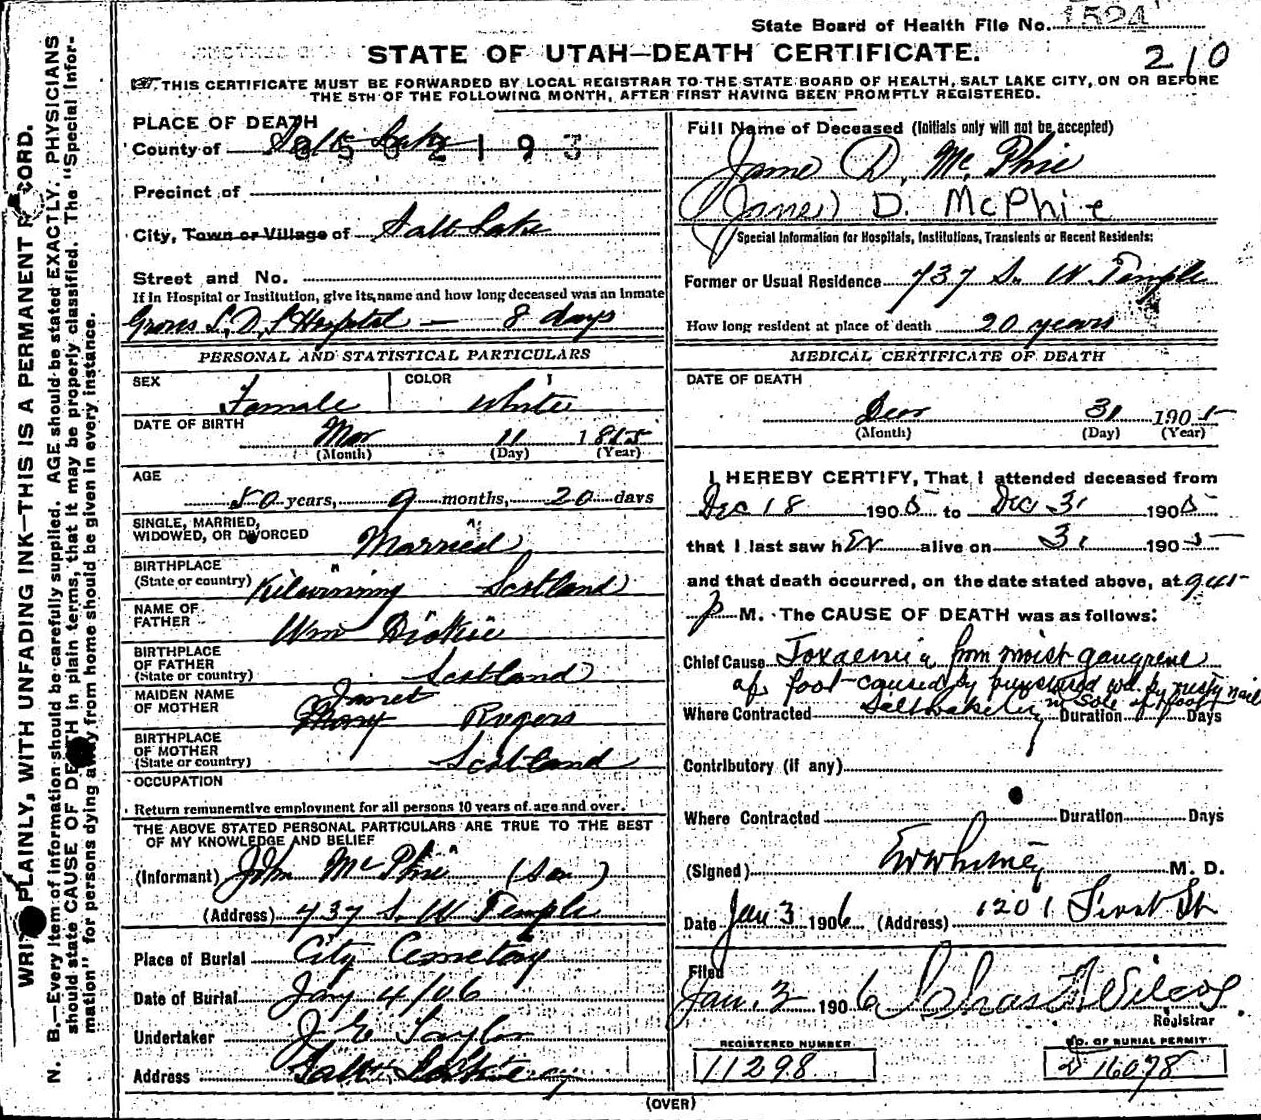 State Board of Health File No. 1524
210
STATE OF UTAH—DEATH CERTIFICATE.
THIS CERTIFICATE MUST BE FORWARDED BY LOCAL REGISTRAR TO THE STATE BOARD OF HEALTH, SALT LAKE CITY, ON OR BEFORE
THE 5TH OF THE FOLLOWING MONTH, AFTER FIRST HAVING BEEN PROMPTLY REGISTERED.
WRITE PLAINLY, WITH UNFADING INK—THIS IS A PERMANENT RECORD.
N. B.—Every item of information should be carefully supplied. AGE should be stated EXACTLY. PHYSICIANS
should state CAUSE OF DEATH in plain terms, that it may be properly classified. The "Special Infor-
mation" for persons dying away from home should be given in every instance.
PLACE OF DEATH
County of Salt Lake
Precinct of
City, Town or Village of Salt Lake
Street and No.
If in Hospital or Institution, give its name and how long deceased was an inmate
Groves L. D. S Hospital — 8 days
PERSONAL AND STATISTICAL PARTICULARS
SEX Female COLOR White
DATE OF BIRTH Mar 11 1855
(Month) (Day) (Year)
AGE
50 years, 9 months, 20 days
SINGLE, MARRIED,
WIDOWED, OR DIVORCED Married
BIRTHPLACE
(State or country) Kilwinning Scotland
NAME OF
FATHER Wm Dickie
BIRTHPLACE
OF FATHER
(State or country) Scotland
MAIDEN NAME Janet
OF MOTHER Mary Rogers
BIRTHPLACE
OF MOTHER
(State or country) Scotland
OCCUPATION
Return remunerative employment for all persons 10 years of age and over.
THE ABOVE STATED PERSONAL PARTICULARS ARE TRUE TO THE BEST
OF MY KNOWLEDGE AND BELIEF
(Informant) John McPhie (Son)
(Address) 737 S. W Temple
Place of Burial City Cemetery
Date of Burial Jany 4/06
Undertaker J E Taylor
Address Salt Lake City
Full Name of Deceased (Initials only will not be accepted)
Jane D. McPhie
(Jane) D. McPhie
Special Information for Hospitals, Institutions, Transients or Recent Residents:
Former or Usual Residence 737 S. W. Temple
How long resident at place of death 20 years
MEDICAL CERTIFICATE OF DEATH
DATE OF DEATH
Dec 31 1905
(Month) (Day) (Year)
I HEREBY CERTIFY, That I attended deceased from
Dec 18 1905 to Dec 31 1905
that I last saw her alive on 31 1905
and that death occurred, on the date stated above, at 945
p M. The CAUSE OF DEATH was as follows:
Chief Cause Toxaemia from moist gangrene
of foot caused by punctured wd. by rusty nail
in sole of foot
Where Contracted Salt Lake City Duration Days
Contributory (if any)
Where Contracted Duration Days
(Signed) EWWhitney M. D.
Date Jan 3 1906 (Address) 1201 First St
Filed
Jan. 3 1906 Chas F Wilcox
Registrar
REGISTERED NUMBER
11298
NO. OF BURIAL PERMIT
D 16078
(OVER)